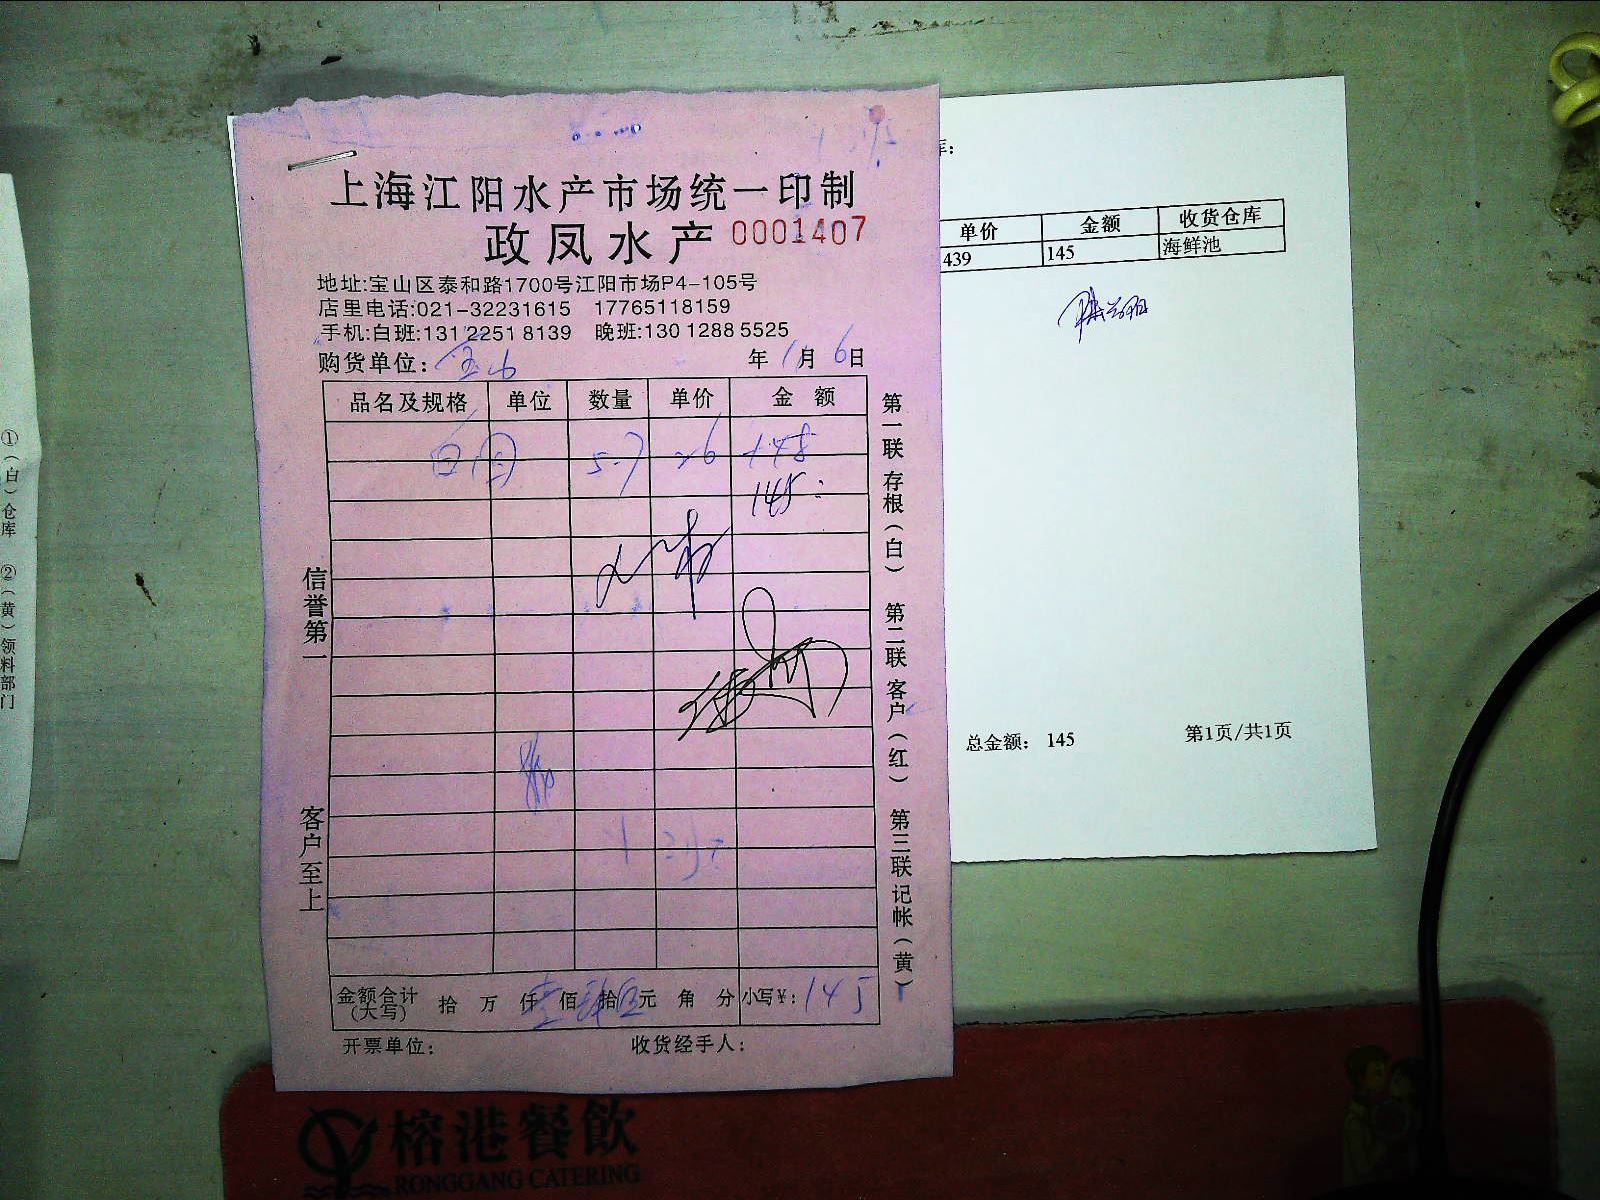 上海江阳水产市场统一印制
政凤水产 0001407
地址:宝山区泰和路1700号江阳市场P4-105号
店里电话:021-32231615 17765118159
手机:白班:131 2251 8139 晚班:130 1288 5525
购货单位: 年 11月 6日
品名及规格 单位 数量 单价 金额
5.7 26 148
145
信誉第一
客户至上
第一联 存根(白) 第二联 客户(红) 第三联 记帐(黄)
金额合计(大写) 拾 万 仟 壹佰 肆拾 伍元 角 分 小写¥: 145
开票单位: 收货经手人:
库:
单价 金额 收货仓库
439 145 海鲜池
总金额: 145 第1页/共1页
①(白)仓库 ②(黄)领料部门
榕港餐飲
RONGGANG CATERING